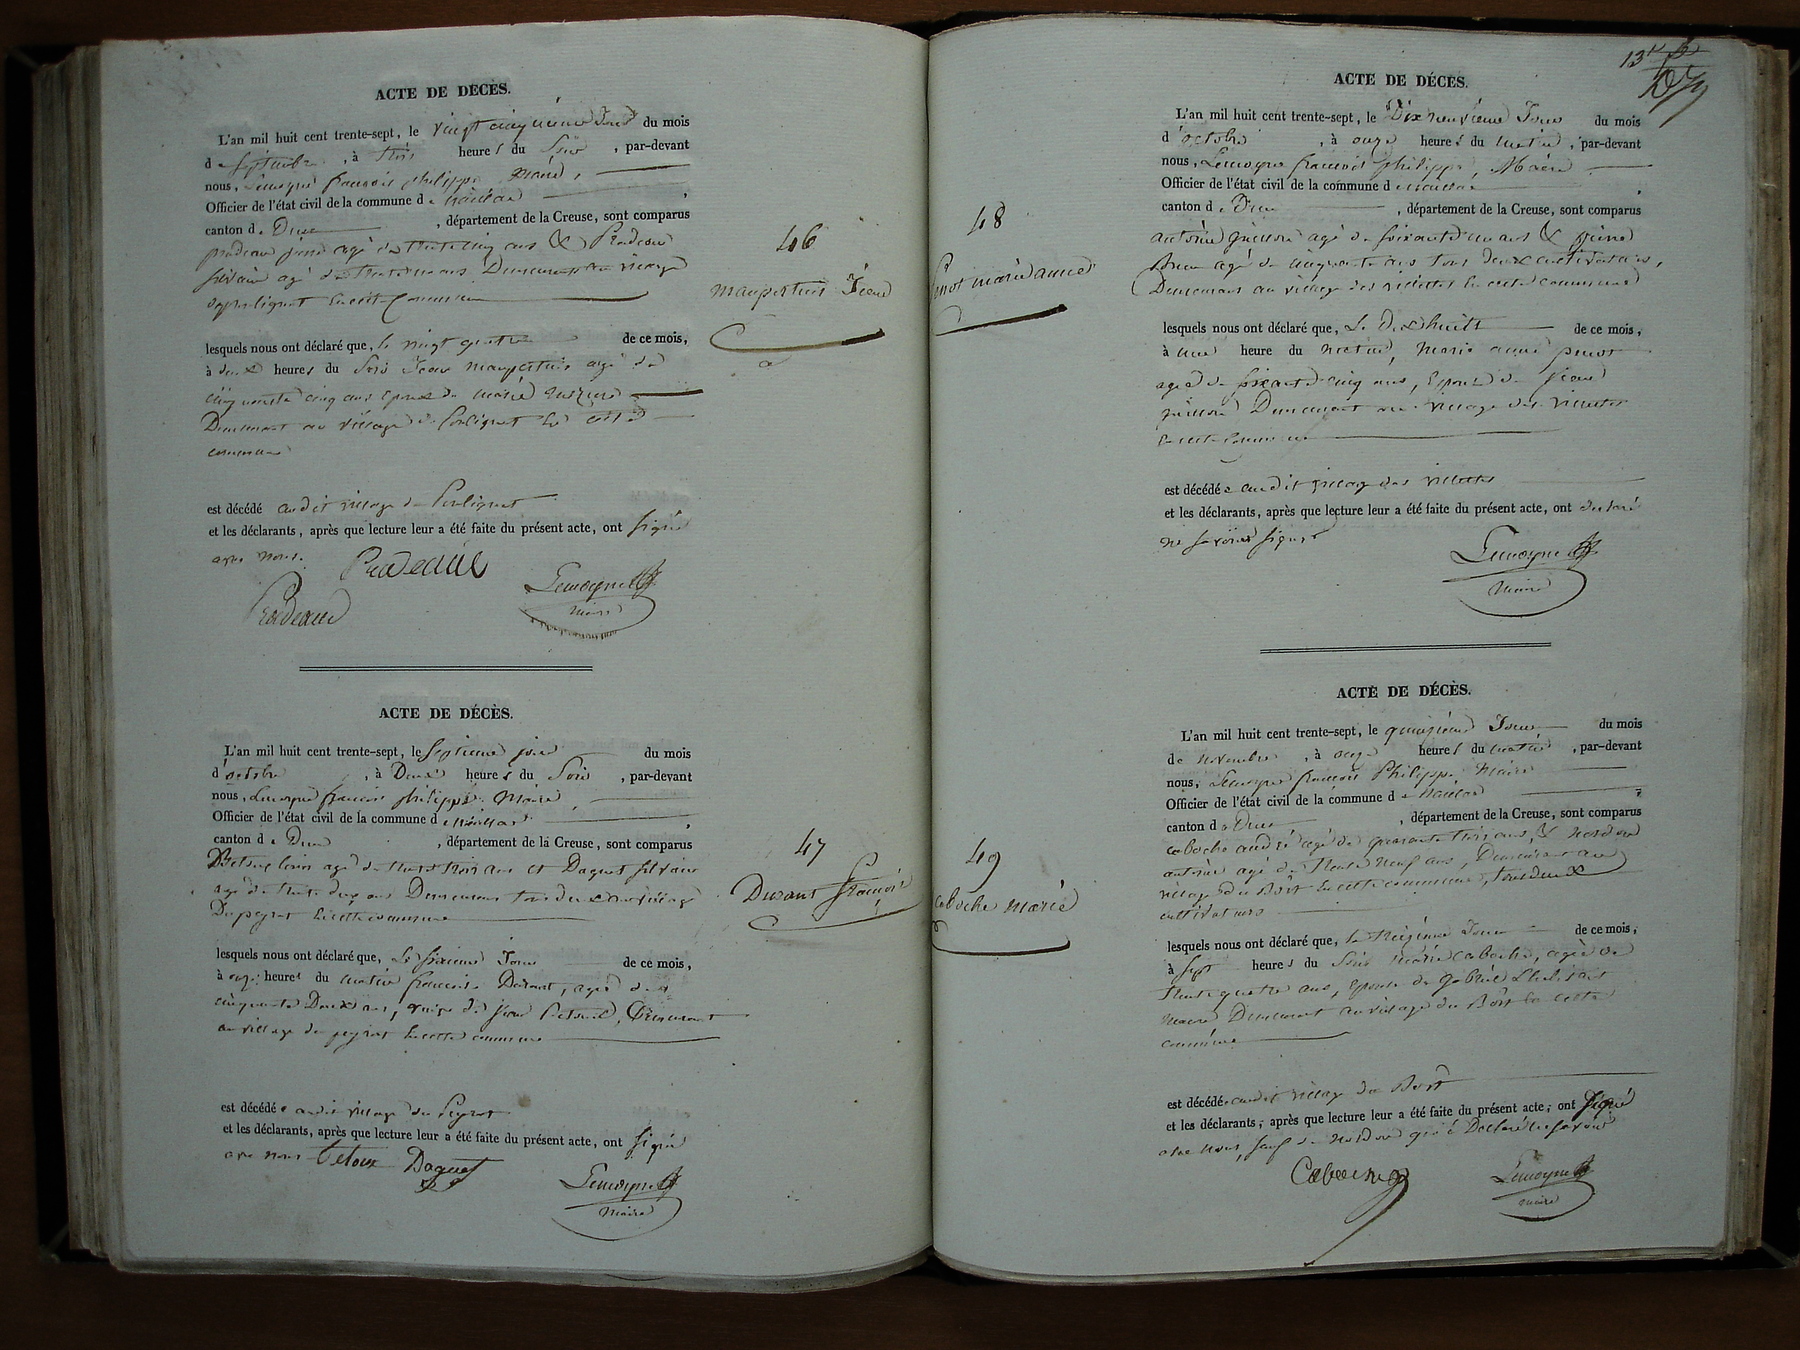 ACTE DE DÉCÈS.
L'an mil huit cent trente-sept, le vingt cinquième Jour du mois
de Septembre, à trois heures du Soir, par-devant
nous, Lemoyne françois philippe, Maire,
Officier de l'état civil de la commune de
canton de Dun, département de la Creuse, sont comparus
pradeau agé de trente cinq ans & Pradeau
Silvain agé de trente ans Demeurant au village
en cette Commune
lesquels nous ont déclaré que, le vingt quatre de ce mois,
à deux heures du Soir Jean maupertuis agé de
cinquante cinq ans Epoux de marie
Demeurant au village de en cette
commune
est décédé audit village de
et les déclarants, après que lecture leur a été faite du présent acte, ont signé
avec nous. Pradeaux
Pradeau Lemoyne
Maire
46
maupertuis Jean
ACTE DE DÉCÈS.
L'an mil huit cent trente-sept, le Septieme jour du mois
d'octobre, à Deux heures du Soir, par-devant
nous, Lemoyne françois philippe Maire,
Officier de l'état civil de la commune de
canton de Dun, département de la Creuse, sont comparus
agé de trente trois ans et Daguet Silvain
agé de trente ans Demeurant tous deux au village
Du peyrat en cette commune
lesquels nous ont déclaré que, Le Sixieme Jour de ce mois,
à onze heures du matin françoise Durant, agée de
cinquante Deux ans, de jean Demeurant
au village du peyrat en cette commune
est décédée audit village du Peyrat
et les déclarants, après que lecture leur a été faite du présent acte, ont signé
avec nous Daguet
Lemoyne
Maire
47
Durant françoise
13
ACTE DE DÉCÈS.
L'an mil huit cent trente-sept, le Dix neuvieme Jour du mois
d'octobre, à onze heures du matin, par-devant
nous, Lemoyne françois philippe, Maire
Officier de l'état civil de la commune de
canton de Dun, département de la Creuse, sont comparus
antoine agé de soixante un ans & pierre
agé de cinquante six tous deux cultivateurs,
Demeurant au village des villettes en cette commune
lesquels nous ont déclaré que, Le Dixhuit de ce mois,
à une heure du matin, Marie anne pinot
agée de soixante cinq ans, Epouse de
Demeurant au village des villettes
en cette Commune
est décédée audit village des villettes
et les déclarants, après que lecture leur a été faite du présent acte, ont declaré
ne savoir signer
Lemoyne
Maire
48
pinot marie anne
ACTE DE DÉCÈS.
L'an mil huit cent trente-sept, le quinzieme Jour du mois
de novembre, à onze heures du matin, par-devant
nous, Lemoyne françois Philippe Maire
Officier de l'état civil de la commune de
canton de Dun, département de la Creuse, sont comparus
caboche andré agé de quarante trois ans, &
antoine agé de trente neuf ans, Demeurant au
village du Bost en cette commune, tous deux
cultivateurs
lesquels nous ont déclaré que, le Treizieme Jour de ce mois,
à sept heures du Soir Marie caboche, agée de
trente quatre ans, Epouse de gabriel
Demeurant au village du Bost en cette
commune
est décédée audit village du Bost
et les déclarants, après que lecture leur a été faite du présent acte, ont signé
avec nous, qui a Declaré ne savoir
Lemoyne
maire
49
caboche marie